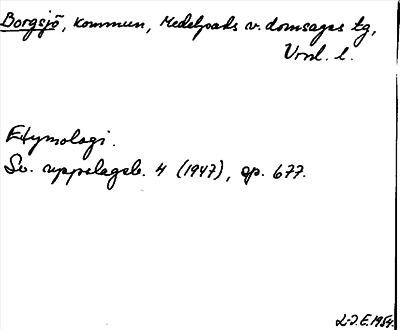 Borgsjö, kommun, Medelpads v. domsagas tg,
Vrnl. l.
Etymologi.
Sv. uppslagsb. 4 (1947), sp. 677.
L-J.E. 1954.